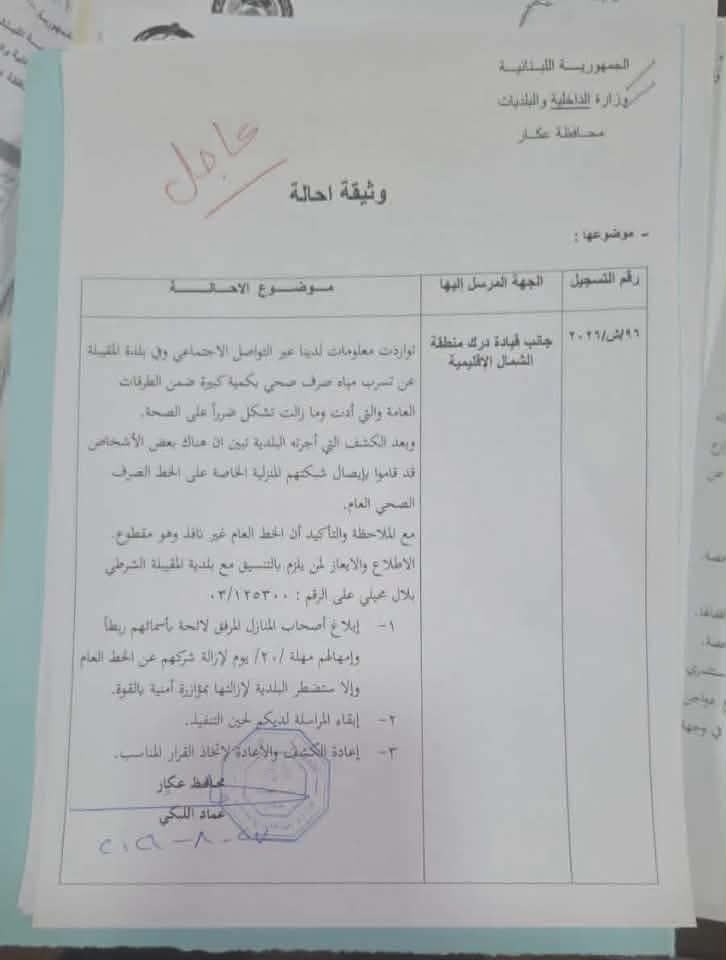 الجمهورية اللبنانية
وزارة الداخلية والبلديات
محافظة عكار
عاجل
وثيقة احالة
- موضوعها :
رقم التسجيل
الجهة المرسل إليها
موضوع الاحالة
٩٦/ش/٢٠٢٦
جانب قيادة درك منطقة
الشمال الإقليمية
تواردت معلومات لدينا عبر التواصل الاجتماعي وفي بلدة المقيبلة
عن تسرب مياه صرف صحي بكمية كبيرة ضمن الطرقات
العامة والتي أدت وما زالت تشكل ضرراً على الصحة.
وبعد الكشف التي أجرته البلدية تبين ان هناك بعض الأشخاص
قد قاموا بإيصال شبكتهم المنزلية الخاصة على الخط الصرف
الصحي العام.
مع الملاحظة والتأكيد أن الخط العام غير نافذ وهو مقطوع.
الاطلاع والايعاز لمن يلزم بالتنسيق مع بلدية المقيبلة الشرطي
بلال محيلي على الرقم : ٠٣/١٢٥٣٠٠
١- إبلاغ أصحاب المنازل المرفق لائحة بأسمائهم ربطاً
وإمهالهم مهلة /٢٠/ يوم لإزالة شركهم عن الخط العام
وإلا ستضطر البلدية لإزالتها بمؤازرة أمنية بالقوة.
٢- إبقاء المراسلة لديكم لحين التنفيذ.
٣- إعادة الكشف والاعادة لإتخاذ القرار المناسب.
محافظ عكار
عماد اللبكي